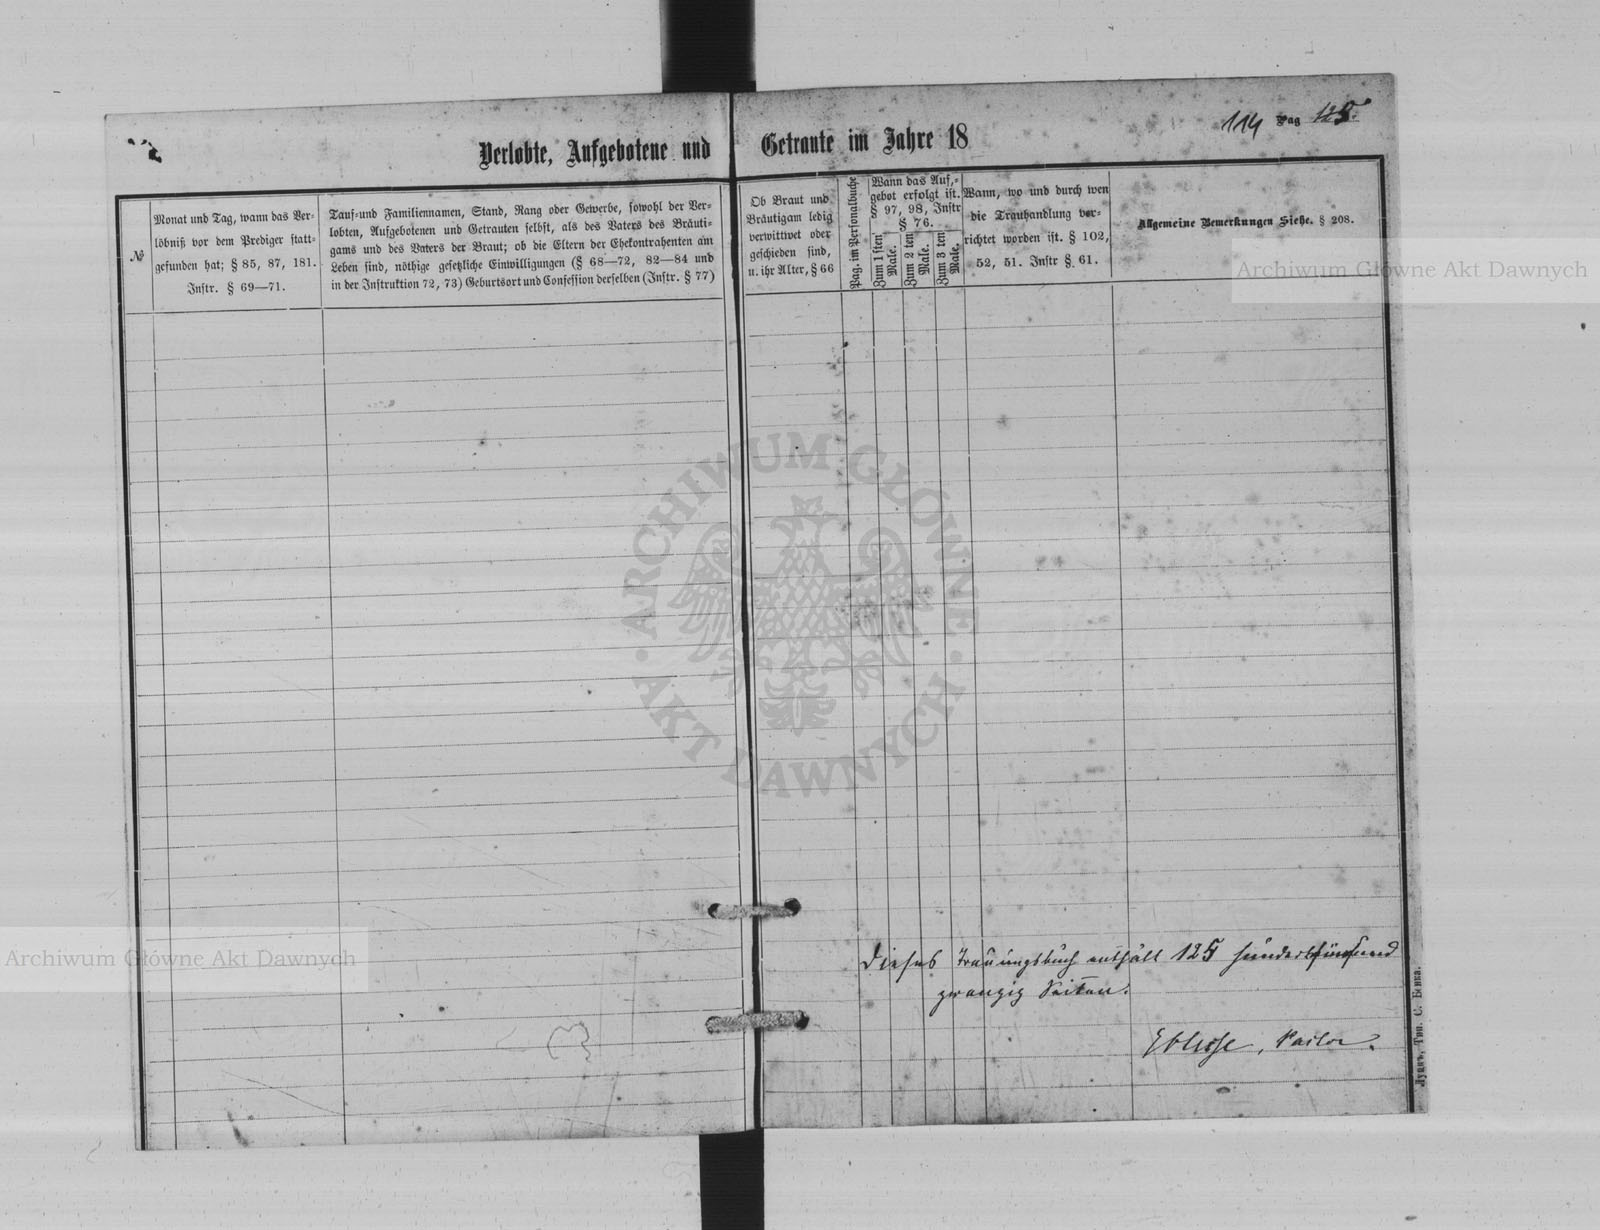 Verlobte, Aufgebotene und Getraute im Jahre 18
114 Pag 125.
№
Monat und Tag, wann das Ver-
löbniß vor dem Prediger statt-
gefunden hat; § 85, 87, 181.
Instr. § 69—71.
Tauf- und Familiennamen, Stand, Rang oder Gewerbe, sowohl der Ver-
lobten, Aufgebotenen und Getrauten selbst, als des Vaters des Bräuti-
gams und des Vaters der Braut; ob die Eltern der Ehekontrahenten am
Leben sind, nöthige gesetzliche Einwilligungen (§ 68—72, 82—84 und
in der Instruktion 72, 73) Geburtsort und Confession derselben (Instr. § 77)
Ob Braut und
Bräutigam ledig
verwittwet oder
geschieden sind,
u. ihr Alter, § 66
Pag. im Personalbuche
Wann das Auf-
gebot erfolgt ist.
§ 97, 98, Instr
§ 76.
Zum 1 sten
Male.
Zum 2 ten
Male.
Zum 3 ten
Male.
Wann, wo und durch wen
die Trauhandlung ver-
richtet worden ist. § 102,
52, 51. Instr § 61.
Allgemeine Bemerkungen Siehe. § 208.
Dieses Trauungsbuch enthält 125 hundertfünfund
zwanzig Seiten.
Pastor.
Луцкъ, Тип. С. Бонка.
Archiwum Główne Akt Dawnych
ARCHIWUM GŁÓWNE
· AKT DAWNYCH ·
Archiwum Główne Akt Dawnych